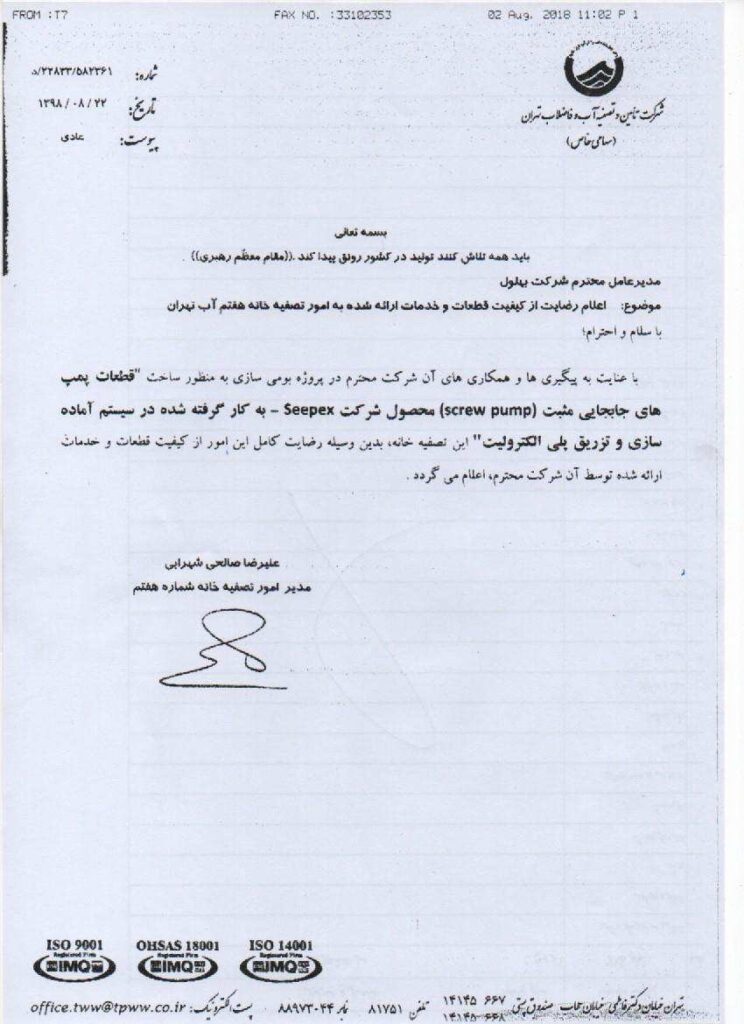 FROM :T7 FAX NO. :33102353 02 Aug. 2018 11:02 P 1
شرکت تأمین و تصفیه آب و فاضلاب تهران
(سهامی خاص)
شماره: ۲۲۸۳۳/۵۸۲۳۶۱/د
تاریخ: ۱۳۹۸/۰۸/۲۲
پیوست: عادی
بسمه تعالی
باید همه تلاش کنند تولید در کشور رونق پیدا کند .((مقام معظّم رهبری)) .
مدیرعامل محترم شرکت بهلول
موضوع: اعلام رضایت از کیفیت قطعات و خدمات ارائه شده به امور تصفیه خانه هفتم آب تهران
با سلام و احترام؛
با عنایت به پیگیری ها و همکاری های آن شرکت محترم در پروژه بومی سازی به منظور ساخت "قطعات پمپ
های جابجایی مثبت (screw pump) محصول شرکت Seepex – به کار گرفته شده در سیستم آماده
سازی و تزریق پلی الکترولیت" این تصفیه خانه، بدین وسیله رضایت کامل این امور از کیفیت قطعات و خدمات
ارائه شده توسط آن شرکت محترم، اعلام می گردد .
علیرضا صالحی شهرابی
مدیر امور تصفیه خانه شماره هفتم
ISO 9001 OHSAS 18001 ISO 14001
Registered Firm Registered Firm Registered Firm
IMQ IMQ IMQ
تهران خیابان دکتر فاطمی خیابان حجاب صندوق پستی ۶۶۷ ۱۴۱۴۵ تلفن ۸۱۷۵۱ نمابر ۸۸۹۷۳۰۴۴ پست الکترونیک: office.tww@tpww.co.ir
۶۶۸ ۱۴۱۴۵